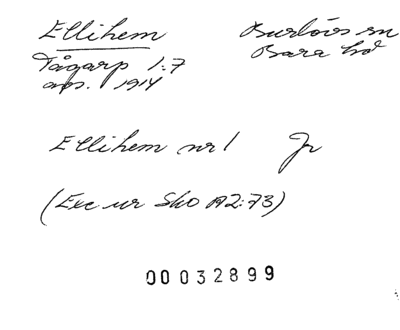 Ellihem
Tågarp 1:7
avs. 1914
Burlövs sn
Bara hd
Ellihem nr 1 Jr
(Exc ur Sko A2:73)
00032899